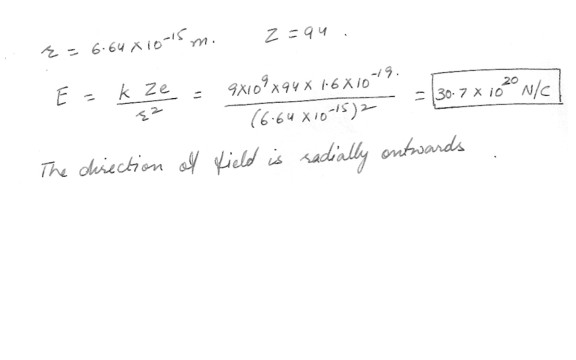 r = 6.64 x 10^-15 m.   Z = 94 .
E = k Ze / r^2 = 9x10^9 x 94 x 1.6 x 10^-19. / (6.64 x 10^-15)^2 = 30.7 x 10^20 N/C
The direction of field is radially outwards .